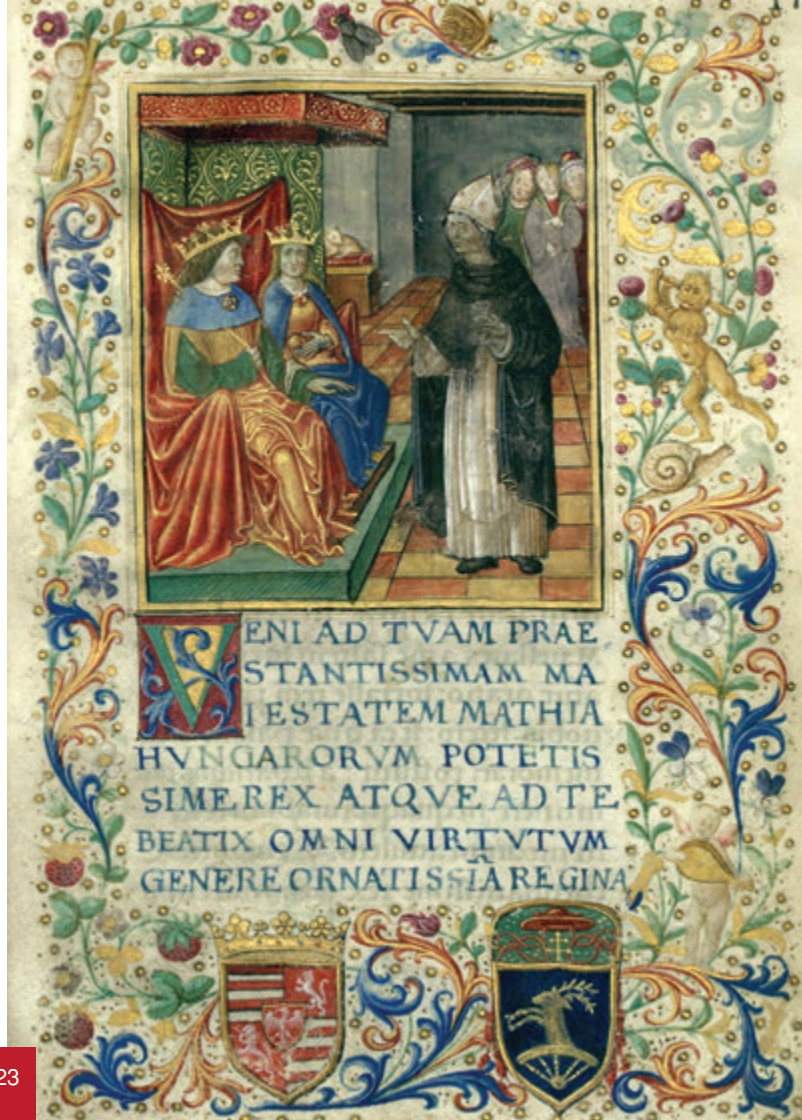 17
VENI AD TVAM PRAE
STANTISSIMAM MA
IESTATEM MATHIA
HVNGARORVM POTETIS
SIME REX ATQVE AD TE
BEATIX OMNI VIRTVTVM
GENERE ORNATISSIA REGINA
23